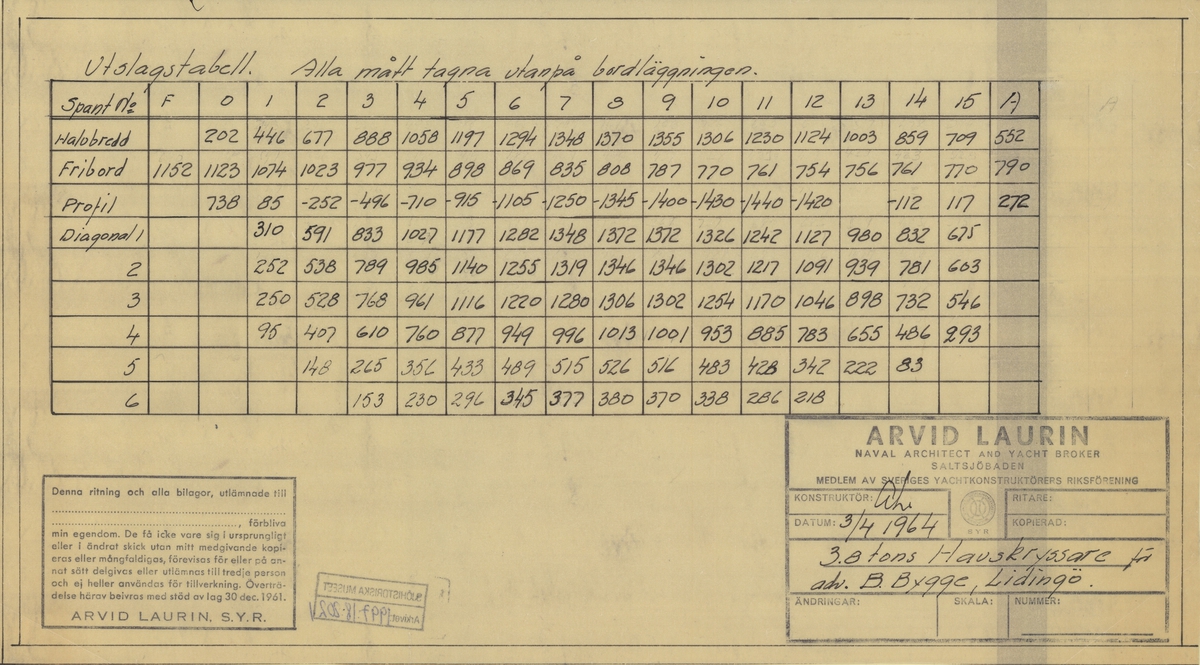 Utslagstabell. Alla mått tagna utanpå bordläggningen.
Spant No F 0 1 2 3 4 5 6 7 8 9 10 11 12 13 14 15 A
Halvbredd 202 446 677 888 1058 1197 1294 1348 1370 1355 1306 1230 1124 1003 859 709 552
Fribord 1152 1123 1074 1023 977 934 898 869 835 808 787 770 761 754 756 761 770 790
Profil 738 85 -252 -496 -710 -915 -1105 -1250 -1345 -1400 -1430 -1440 -1420 -112 117 272
Diagonal 1 310 591 833 1027 1177 1282 1348 1372 1372 1326 1242 1127 980 832 675
2 252 538 789 985 1140 1255 1319 1346 1346 1302 1217 1091 939 781 603
3 250 528 768 961 1116 1220 1280 1306 1302 1254 1170 1046 898 732 546
4 95 407 610 760 877 949 996 1013 1001 953 885 783 655 486 293
5 148 265 356 433 489 515 526 516 483 428 342 222 83
6 153 230 296 345 377 380 370 338 286 218
ARVID LAURIN
NAVAL ARCHITECT AND YACHT BROKER
SALTSJÖBADEN
MEDLEM AV SVERIGES YACHTKONSTRUKTÖRERS RIKSFÖRENING
KONSTRUKTÖR:
RITARE:
DATUM: 3/4 1964
S.Y.R
KOPIERAD:
3.8 tons Havskryssare för
adv. B. Bygge, Lidingö.
ÄNDRINGAR:
SKALA:
NUMMER:
Denna ritning och alla bilagor, utlämnade till
, förbliva
min egendom. De få icke vare sig i ursprungligt
eller i ändrat skick utan mitt medgivande kopi-
eras eller mångfaldigas, förevisas för eller på an-
nat sätt delgivas eller utlämnas till tredje person
och ej heller användas för tillverkning. Överträ-
delse härav beivras med stöd av lag 30 dec. 1961.
ARVID LAURIN, S.Y.R.
SJÖHISTORISKA MUSEET
Arkivet